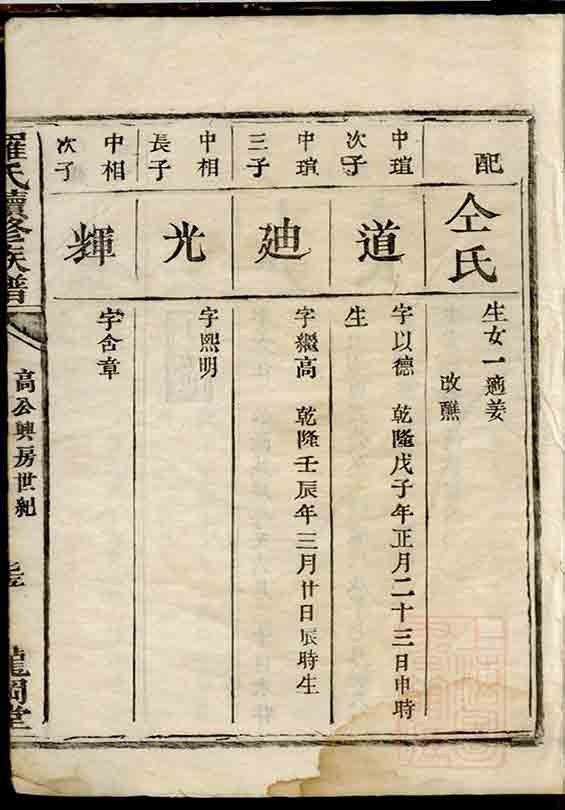 配
仝氏
生女一適姜
改醮
中瑄
次子
道
字以德 乾隆戊子年正月二十三日申時
生
中瑄
三子
廸
字繼高 乾隆壬辰年三月廿日辰時生
中相
長子
光
字熙明
中相
次子
輝
字含章
羅氏續修族譜
高公興房世紀
龍岡堂